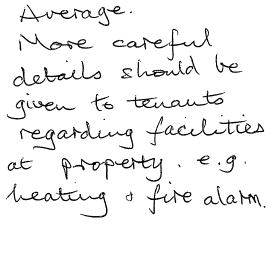 Average.
More careful
details should be
given to tenants
regarding facilities
at property. e.g.
heating & fire alarm.